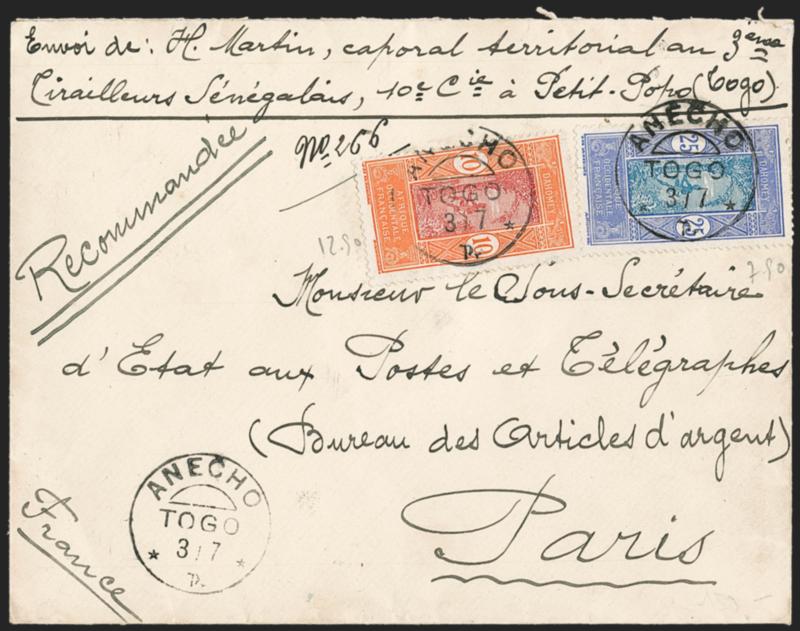 Envoi de: H. Martin, caporal territorial au 3ème
Tirailleurs Sénégalais, 10e Cie à Petit-Popo (Togo)
Recommandée
No 266
10
AFRIQUE OCCIDENTALE FRANÇAISE
DAHOMEY
10
ANECHO
TOGO
3 7
25
AFRIQUE OCCIDENTALE FRANÇAISE
DAHOMEY
25
ANECHO
TOGO
3 7
12.50
7.50
Monsieur le Sous-Secrétaire
d'Etat aux Postes et Télégraphes
(Bureau des Articles d'argent)
Paris
ANECHO
TOGO
3 7
France